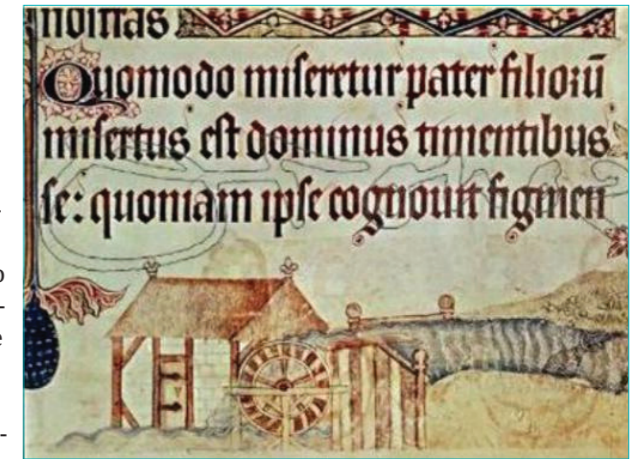 noſtras
Quomodo miſeretur pater filioꝛū
miſertus eſt dominus timentibus
ſe: quoniam ipſe cognouit figmen